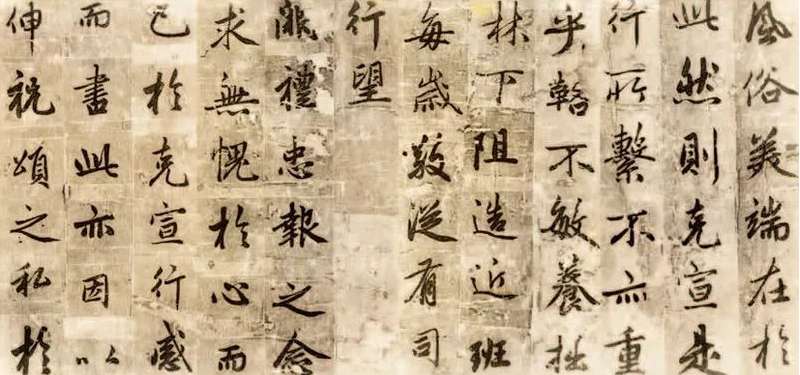 風俗美端在於
此然則克宣是
行所繫不亦重
乎輅不敏養拙
林下阻造近班
每歲從有司
行望
禮忠報之念
求無愧於心而
已於克宣行感
而書此亦因以
伸祝頌之私於